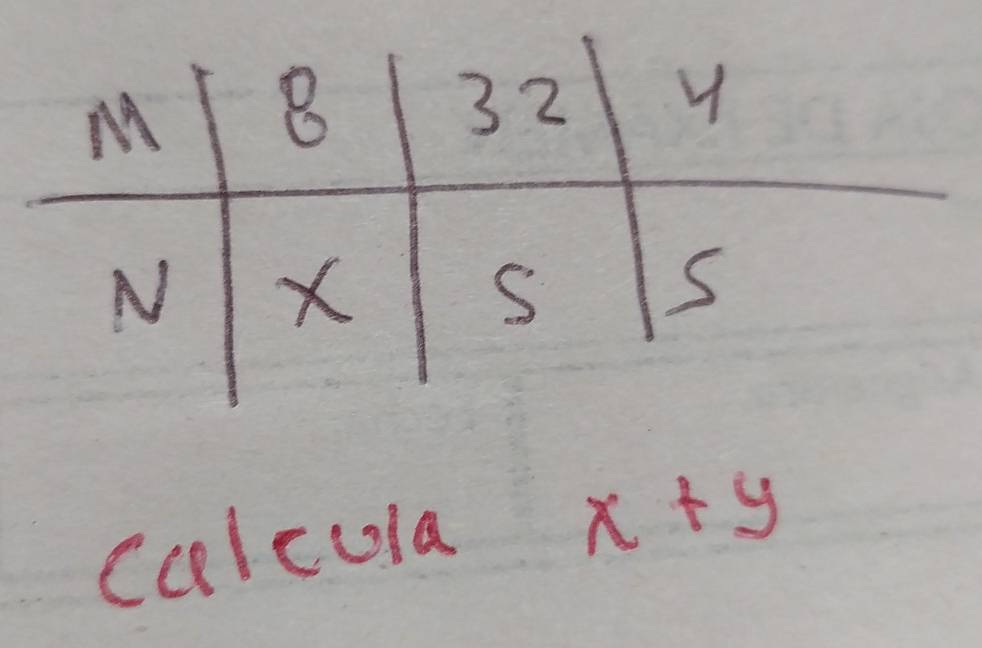 M 8 32 y
N x 5 5
calcula x + y